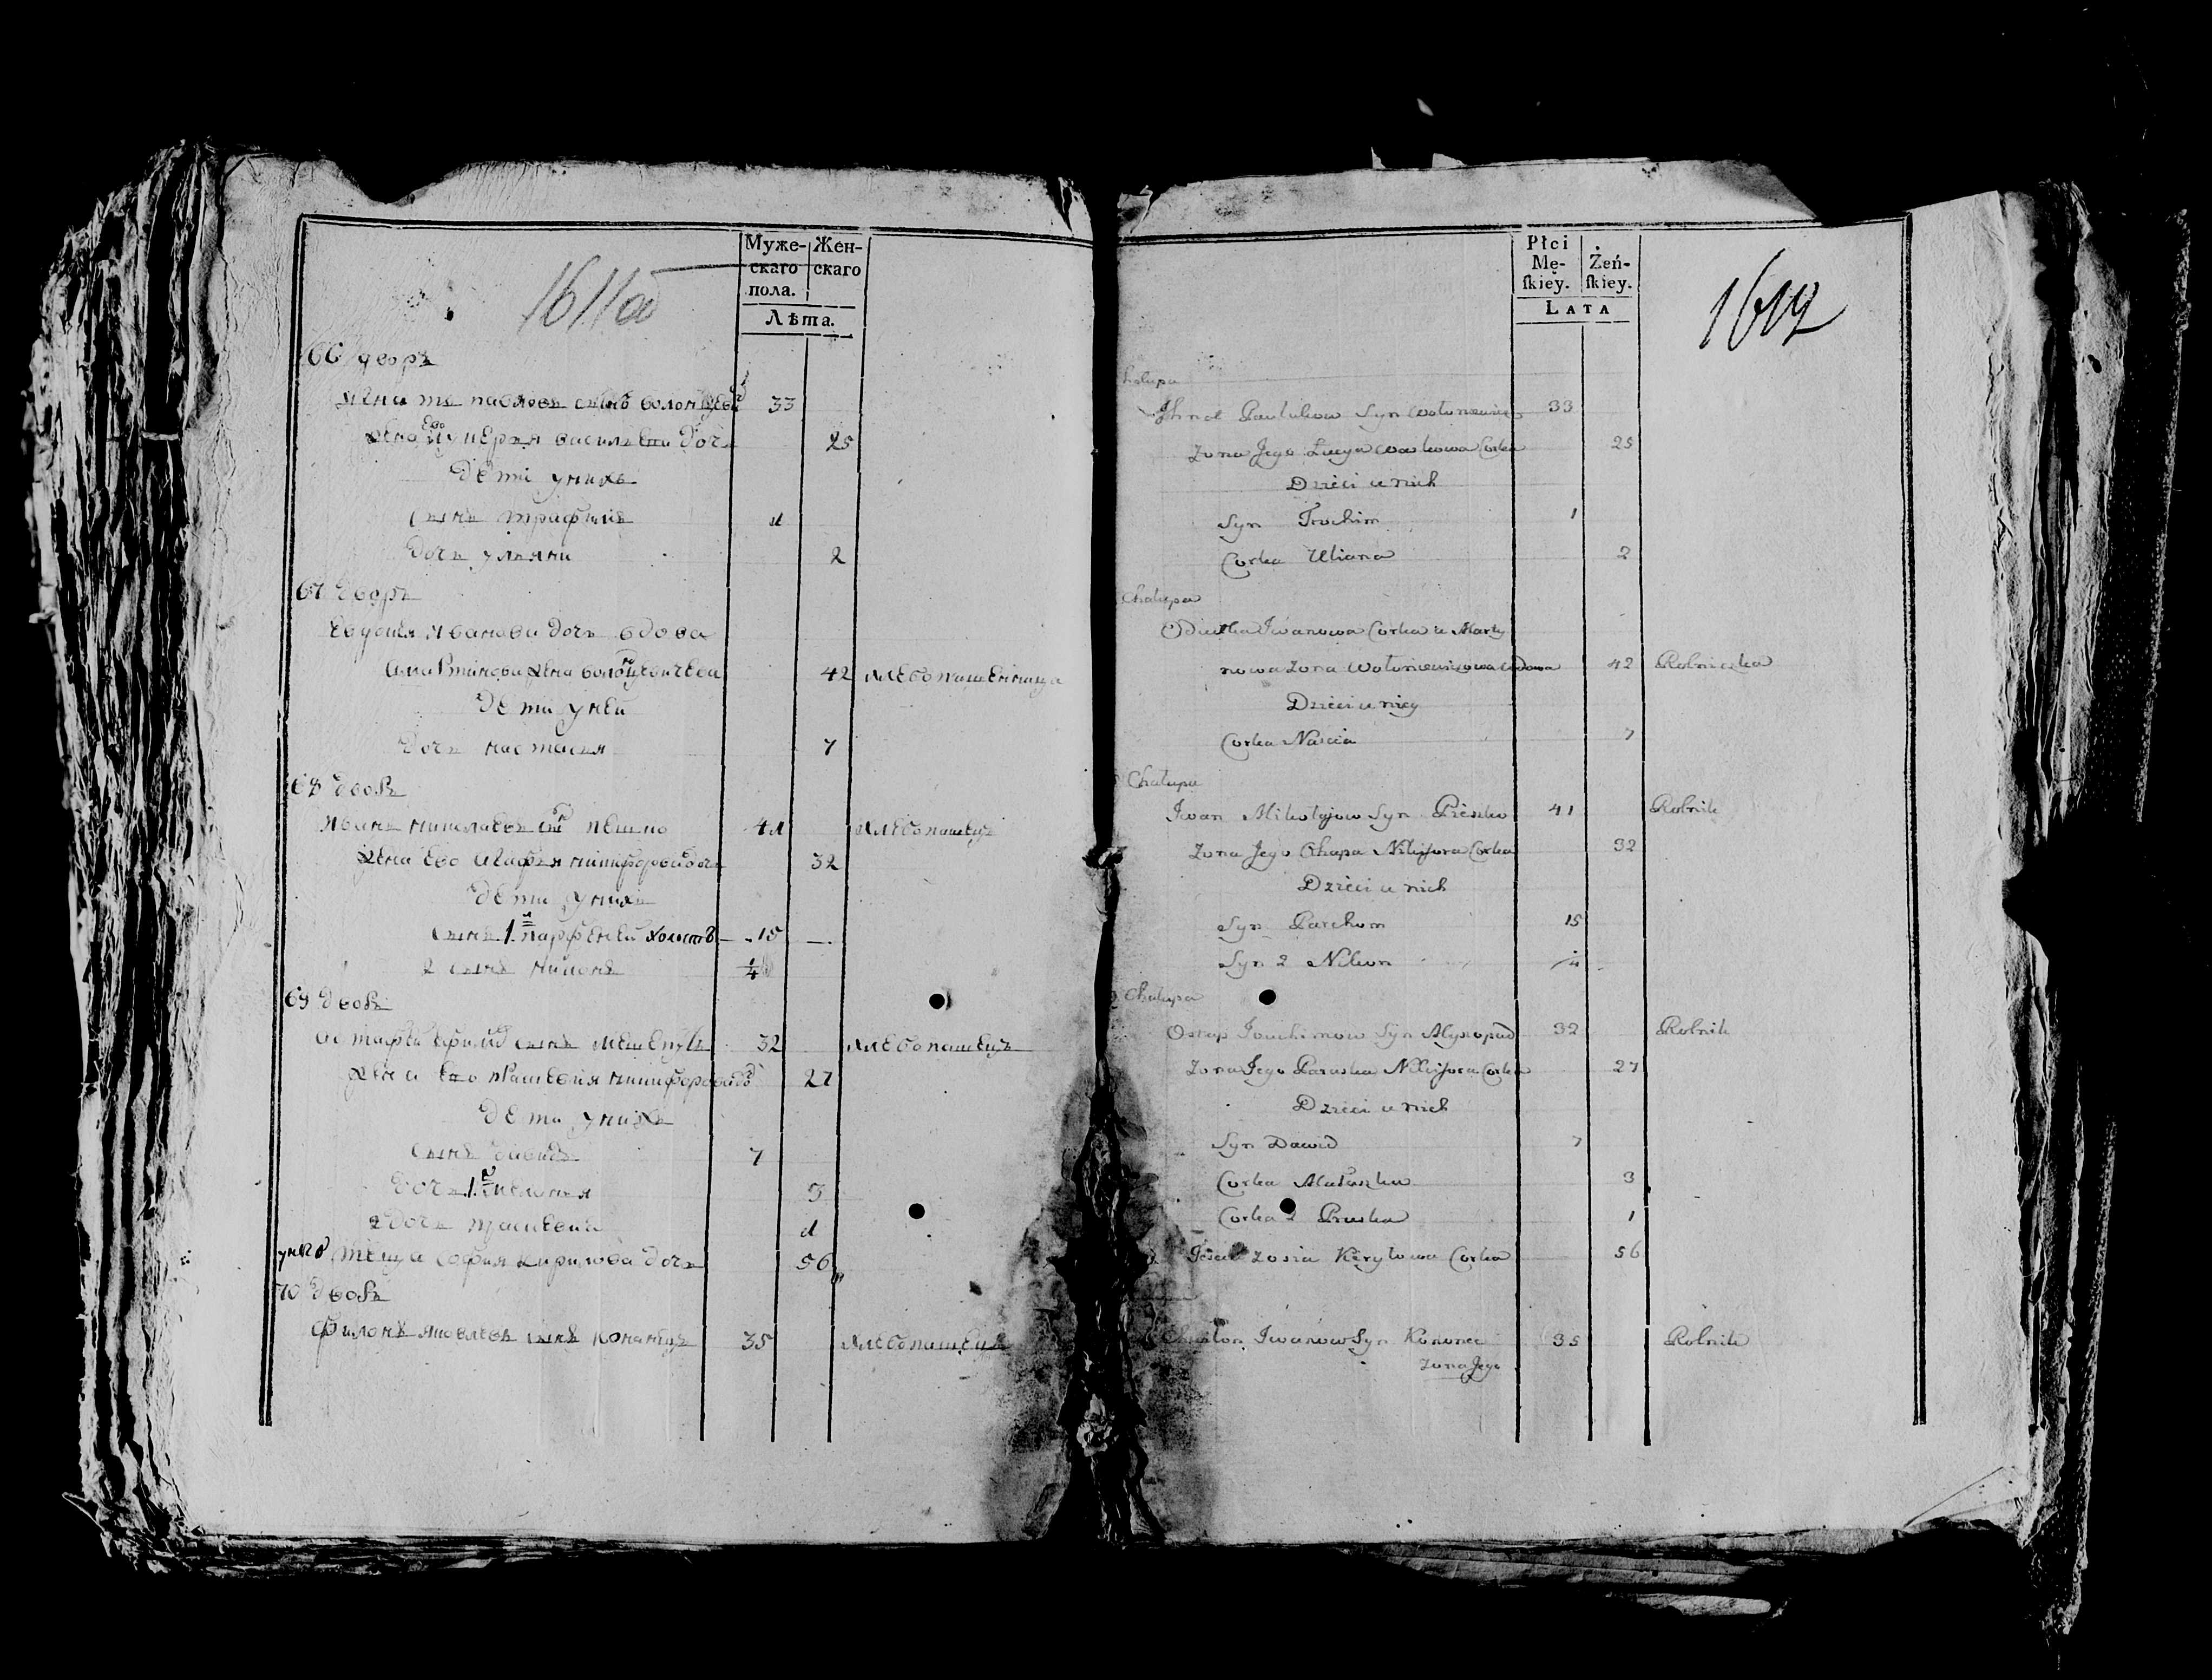 Муже-
скаго
пола.
Жен-
скаго
Лѣта.
1611об
66 дворъ
Игнатъ павловъ сынъ 33
жена его лукерья василева дочь 25
дети унихъ
сынъ трафимъ 1
дочь ульяна 2
67 дворъ
Евдокия Иванова дочь вдова
Мартинова жена 42 хлебопашенница
дети уней
дочь настасья 7
68 дворъ
Иванъ николаевъ сынъ пешко 41 хлебопашецъ
жена Ево Агафья никифорова дочь 32
дети унихъ
сынъ 1й парфеней холостъ 15
2 сынъ никонъ 1/4
69 дворъ
остафей сынъ 32 хлебопашецъ
жена Ево никифорова дочь 27
дети унихъ
сынъ давидъ 7
дочь 1я меланья 3
2 дочь 1
унего теща софия кирилова дочь 56
70 дворъ
Филонъ яковлевъ сынъ 35 хлебопашецъ
Płci
Mę-
ſkiey.
Żeń-
ſkiey.
LATA
1612
Chalupa
Ihnat Pawlukow Syn 33
Zona Jego Lucya Waskowa Corka 25
Dzieci u nich
Syn Trochim 1
Corka Uliana 2
Chalupa
Odiutka Iwanowa Corka a Marty
nowa Zona Wołoncewiczowa wdowa 42 Rolniczka
Dzieci u niey
Corka Nascia 7
Chalupa
Iwan Mikołajow Syn Pieszko 41 Rolnik
Zona Jego Ahapa Nikifora Corka 32
Dzieci u nich
Syn Parchom 15
Syn 2 Nikon
Chalupa
Ostap Jouchimow Syn 32 Rolnik
Zona Jego Paraska Nikifora Corka 27
Dzieci u nich
Syn Dawid 7
Corka Małaszka 3
Corka 2 Pruska 1
Zosia Kiryłowa Corka 56
Iwanow Syn Kononec 35 Rolnik
Zona Jego